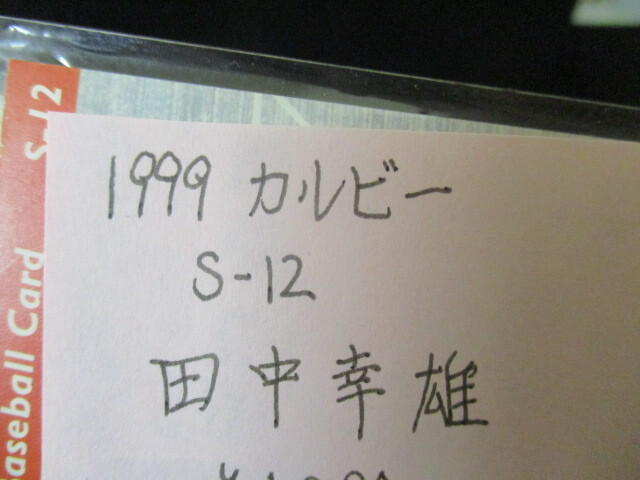 S-12
Baseball Card
1999 カルビー
S-12
田中幸雄